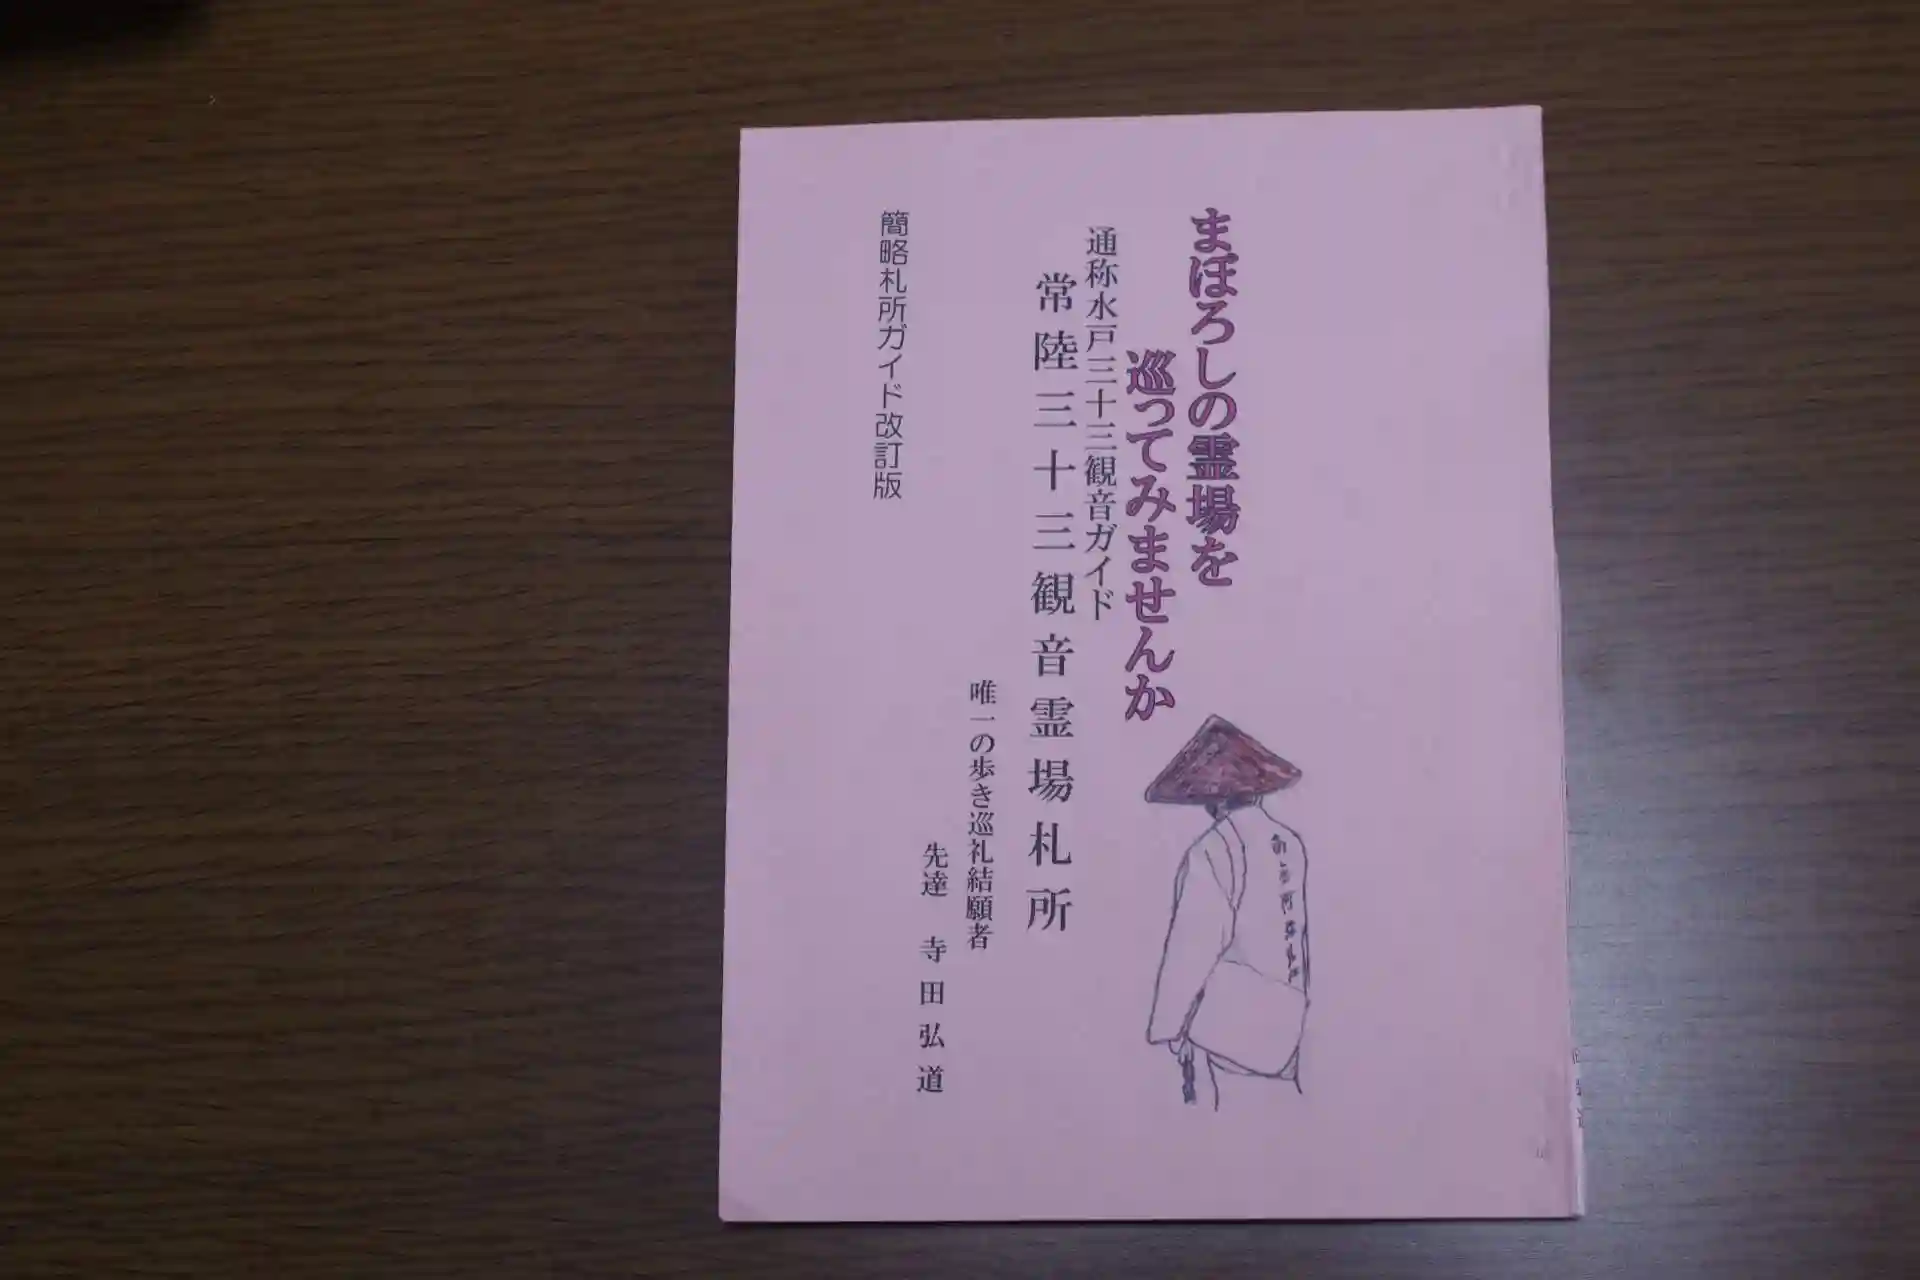 まぼろしの霊場を
巡ってみませんか
通称水戸三十三観音ガイド
常陸三十三観音霊場札所
唯一の歩き巡礼結願者
先達 寺田弘道
簡略札所ガイド改訂版